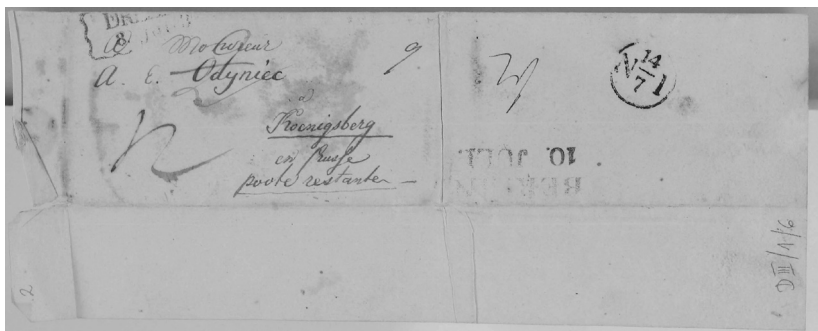 DRES
8 JUL
A Monsieur
A. E. Odyniec
9
à
Koenigsberg
en Prusse
poste restante
N 14/7 1
10. JULI.
BERLIN
D III/1/6
2